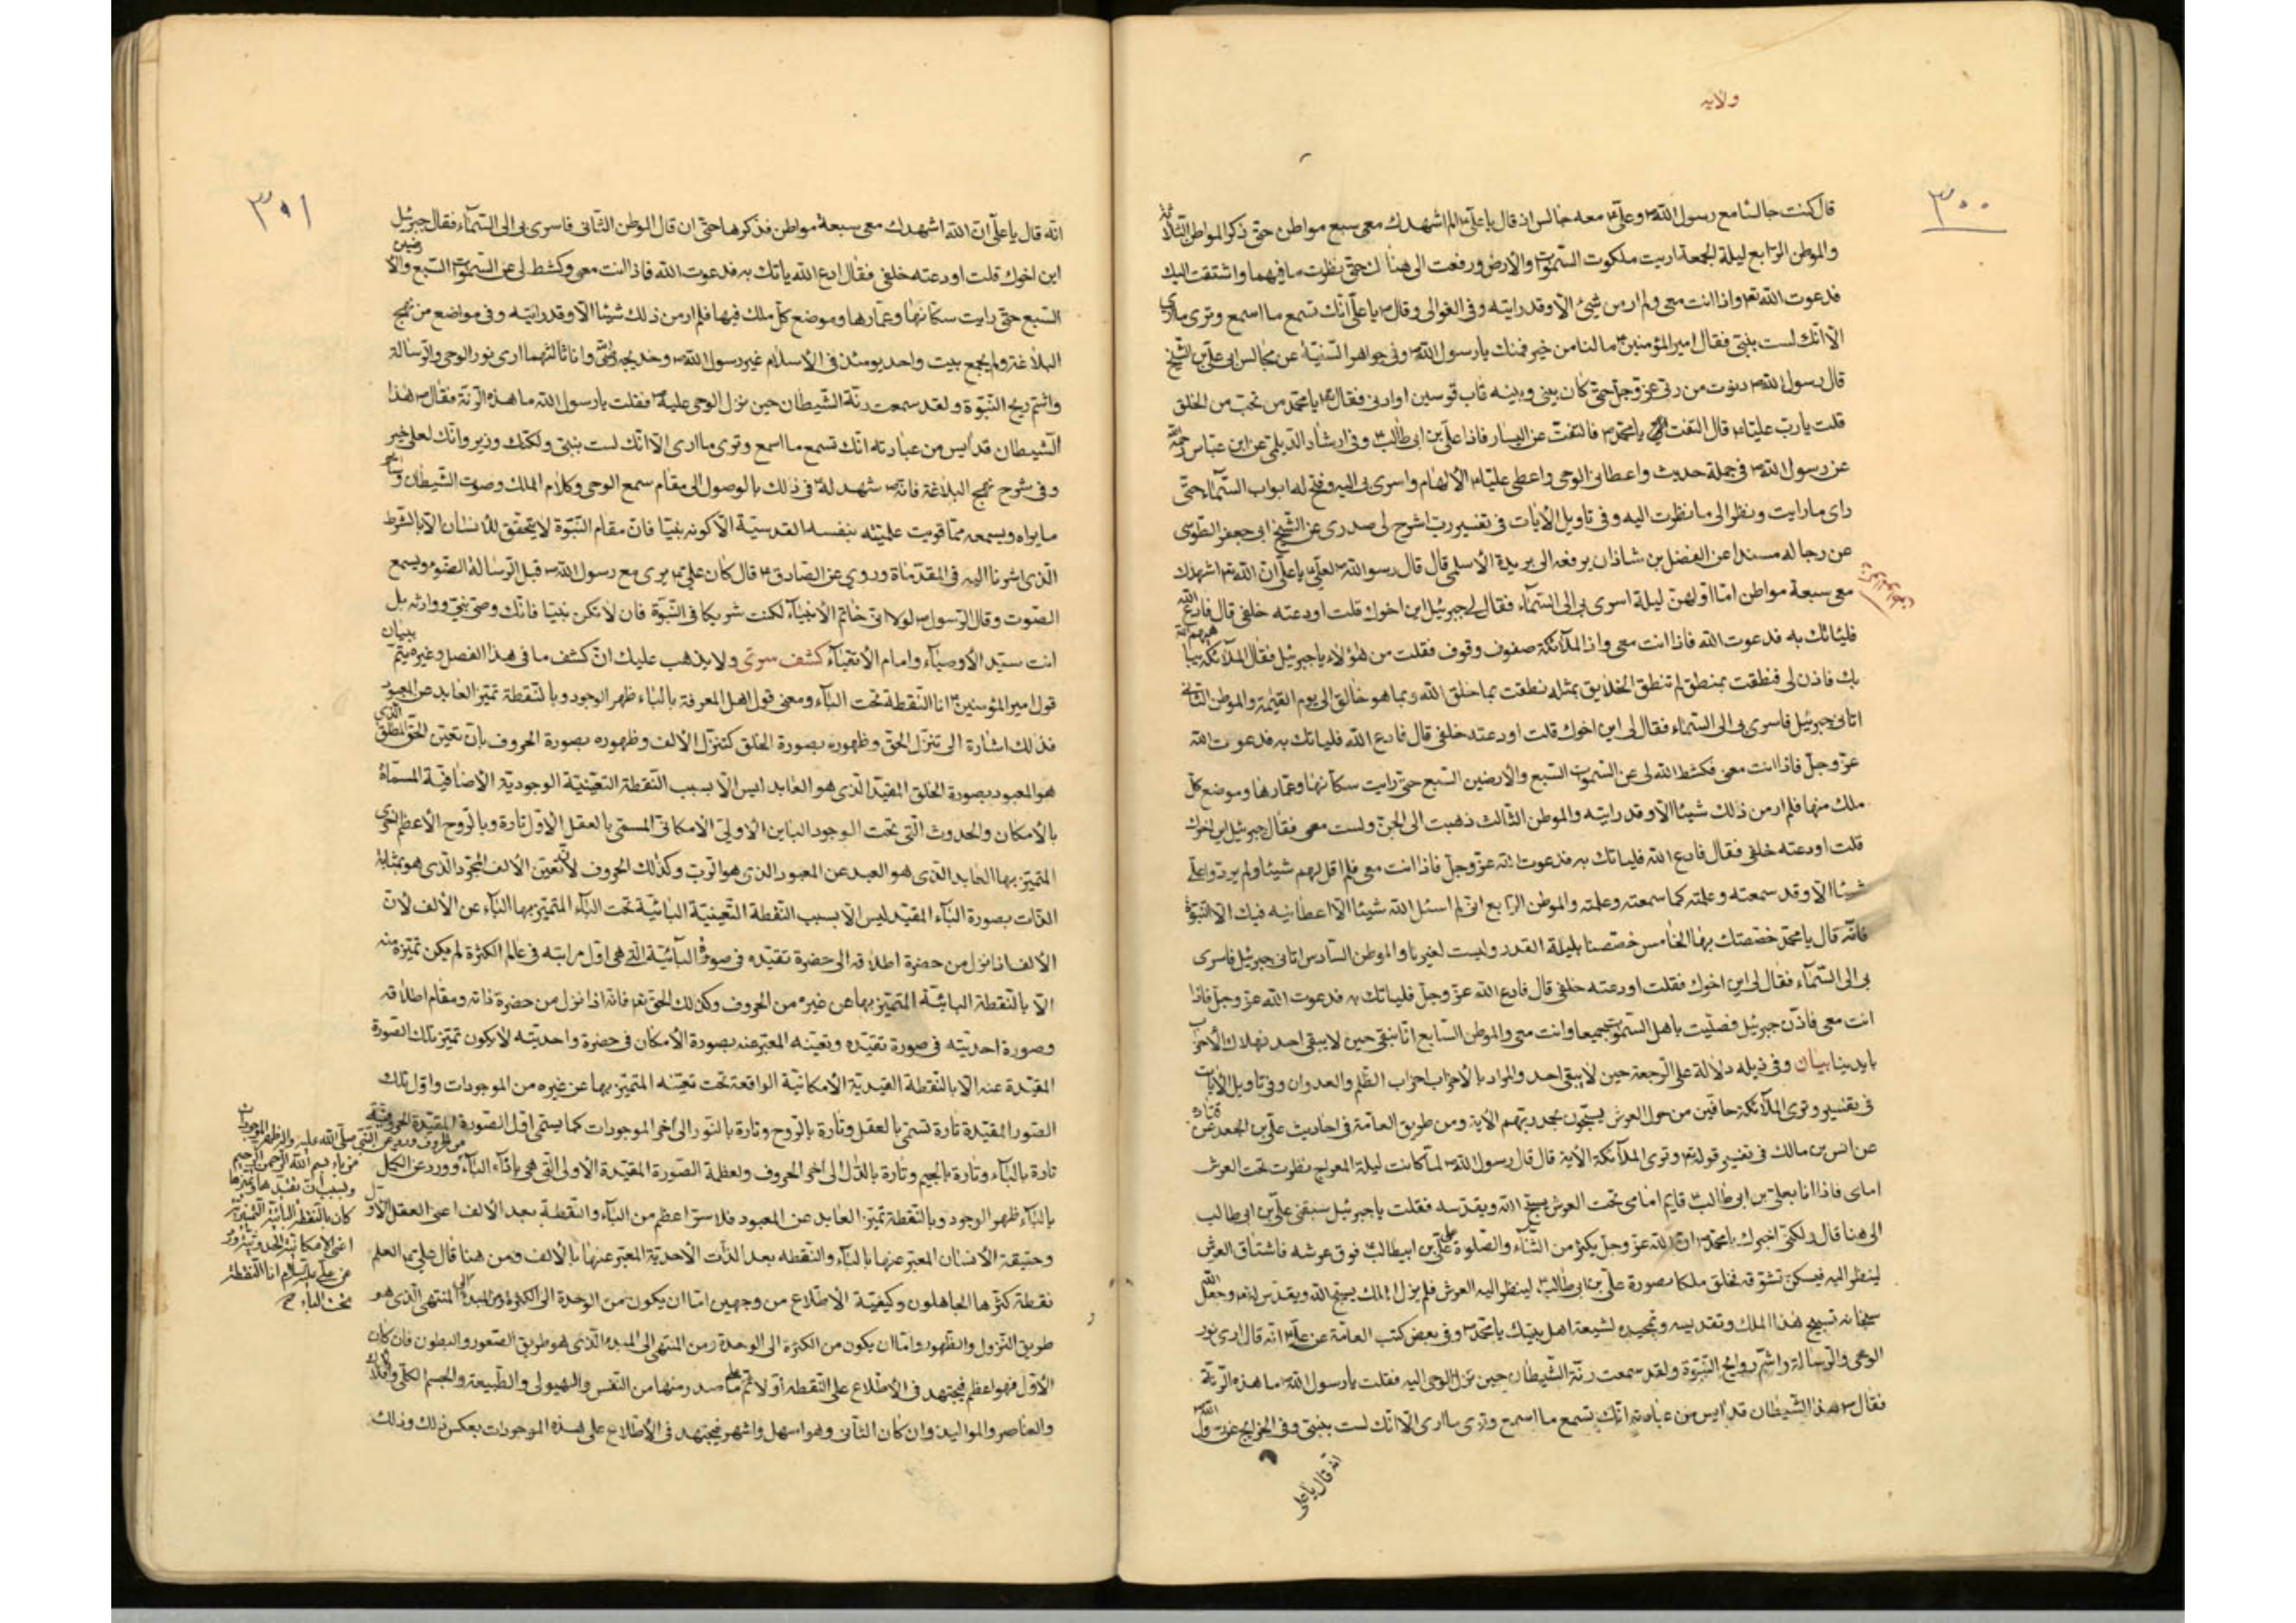 ولايه
٣٠٠
قال كنت جالسا مع رسول الله ص وعلي ع معه جالس اذ قال يا علي الم اشهدك معي سبع مواطن حتى ذكر المواطن الثلاثة
والموطن الرابع ليلة الجمعة اريت ملكوت السموات والارض ورفعت الي هناك حتى نظرت ما فيهما واشتقت اليك
فدعوت الله تع واذا انت معي ولم ار من شيئ الا وقد رايته وفي الغوالي وقال ص يا علي انك تسمع ما اسمع وترى ما ارى
الا انك لست بنبي فقال امير المؤمنين ع ما لنا من خير فمنك يا رسول الله ص وفي جواهر السنية عن مجالس ابي علي بن الشيخ
قال رسول الله ص دنوت من ربي عز وجل حتى كان بيني وبينه قاب قوسين او ادنى فقال يا محمد من تحب من الخلق
قلت يا رب عليا قال التفت يا محمد فالتفت عن اليسار فاذا علي بن ابي طالب ع وفي ارشاد الديلمي عن ابن عباس
عن رسول الله ص في جملة حديث واعطاني الوحي واعطى عليا الالهام واسرى بي اليه وفتح له ابواب السماء حتى
راى ما رايت ونظر الى ما نظرت اليه وفي تاويل الايات في تفسير رب اشرح لي صدري عن الشيخ ابي جعفر الطوسي
عن رجاله مسندا عن الفضل بن شاذان يرفعه الى بريدة الاسلمي قال قال رسول الله ص لعلي ع يا علي ان الله تع اشهدك
معي سبعة مواطن اما اولهن ليلة اسرى بي الى السماء فقال لي جبرئيل اين اخوك قلت اودعته خلفي قال فادع الله
فلياتك به فدعوت الله فاذا انت معي واذ الملائكة صفوف وقوف فقلت من هؤلاء يا جبرئيل فقال الملائكة
بك فاذن لي فنطقت بمنطق لم تنطق الخلايق بمثله نطقت بما خلق الله وبما هو خالق الى يوم القيمة والموطن الثاني
اتاني جبرئيل فاسرى بي الى السماء فقال لي اين اخوك قلت اودعته خلفي قال فادع الله فلياتك به فدعوت الله
عز وجل فاذا انت معي فكشط الله لي عن السموات السبع والارضين السبع حتى رايت سكانها وعمارها وموضع كل
ملك منها فلم ار من ذلك شيئا الا وقد رايته والموطن الثالث ذهبت الى الجن ولست معي فقال جبرئيل اين اخوك
قلت اودعته خلفي فقال فادع الله فلياتك به فدعوت الله عز وجل فاذا انت معي فلم اقل لهم شيئا ولم يردوا علي
شيئا الا وقد سمعته وعلمته كما سمعته وعلمته والموطن الرابع اني لم اسئل الله شيئا الا اعطانيه فيك الا النبوة
فانه قال يا محمد خصصتك بها الخامس خصصنا بليلة القدر وليست لغيرنا والموطن السادس اتاني جبرئيل فاسرى
بي الى السماء فقال لي اين اخوك فقلت اودعته خلفي قال فادع الله عز وجل فلياتك به فدعوت الله عز وجل فاذا
انت معي فاذن جبرئيل فصليت باهل السموات جميعا وانت معي والموطن السابع انا نبقى حين لا يبقى احد نهلاك الاحزاب
بايدينا بيان وفي ذيله دلالة على الرجعة حين لا يبقى احد والمراد بالاحزاب احزاب الظلم والعدوان وفي تاويل الايات
في تفسير وترى الملائكة حافين من حول العرش يسبحون بحمد ربهم الاية ومن طريق العامة في احاديث علي بن الجعد عن قتادة
عن انس بن مالك في تفسير قوله تع وترى الملائكة الاية قال قال رسول الله ص لما كانت ليلة المعراج نظرت تحت العرش
امامي فاذا انا بعلي بن ابي طالب ع قايم امامي تحت العرش يسبح الله ويقدسه فقلت يا جبرئيل سبقني علي بن ابي طالب
الى هنا قال ولكني اخبرك يا محمد ان الله عز وجل يكثر من الثناء والصلوة على علي بن ابيطالب فوق عرشه فاشتاق العرش
لينظر اليه فيسكن تشوقه فخلق ملكا بصورة علي بن ابي طالب لينظر اليه العرش فلم يزل الملك يسبح الله ويقدس له وجعل الله
سبحانه تسبيح هذا الملك وتقديسه وتمجيده لشيعة اهل بيتك يا محمد ص وفي بعض كتب العامة عن علي ع انه قال ارى نور
الوحي والرسالة واشم روايح النبوة ولقد سمعت رنة الشيطان حين نزل الوحي اليه فقلت يا رسول الله ما هذه الرنة
فقال ص هذا الشيطان قد ايس من عبادته انك تسمع ما اسمع وترى ما ارى الا انك لست بنبي وفي الخرايج عن رسول الله
انه قال يا علي
٣٠١
انه قال يا علي ان الله اشهدك معي سبعة مواطن فذكرها حتى ان قال الموطن الثاني فاسرى بي الى السماء فقال جبرئيل
اين اخوك قلت اودعته خلفي فقال ادع الله ياتك به فدعوت الله فاذا انت معي وكشط لي عن السموات السبع والارضين
السبع حتى رايت سكانها وعمارها وموضع كل ملك فيها فلم ار من ذلك شيئا الا وقد رايته وفي مواضع من نهج
البلاغة ولم يجمع بيت واحد يومئذ في الاسلام غير رسول الله ص وخديجة وانا ثالثهما ارى نور الوحي والرسالة
واشم ريح النبوة ولقد سمعت رنة الشيطان حين نزل الوحي عليه ص فقلت يا رسول الله ما هذه الرنة فقال ص هذا
الشيطان قد ايس من عبادته انك تسمع ما اسمع وترى ما ارى الا انك لست بنبي ولكنك وزير وانك لعلى خير
وفي شرح نهج البلاغة فانه ص شهد له ع في ذلك بالوصول الى مقام سمع الوحي وكلام الملك وصوت الشيطان وساير
ما يراه ويسمعه مما قويت عليه نفسه القدسية الا كونه نبيا فان مقام النبوة لا يتحقق للانسان الا بالشرط
الذي اشرنا اليه في المقدمات وروي عن الصادق ع قال كان علي ع يرى مع رسول الله ص قبل الرسالة الضوء ويسمع
الصوت وقال الرسول ص لولا اني خاتم الانبياء لكنت شريكا في النبوة فان لا تكن نبيا فانك وصي نبي ووارثه بل
انت سيد الاوصياء وامام الاتقياء كشف سري ولا يذهب عليك ان كشف ما في هذا الفصل وغيره يتم ببيان
قول امير المؤمنين ع انا النقطة تحت الباء ومعنى قول اهل المعرفة بالباء ظهر الوجود وبالنقطة تميز العابد عن المعبود
فذلك اشارة الى تنزل الحق وظهوره بصورة الخلق كتنزل الالف وظهوره بصورة الحروف بان تعين الحق المطلق الذي
هو المعبود بصورة الخلق المقيد الذي هو العابد ليس الا بسبب النقطة التعينية الوجودية الاضافية المسماة
بالامكان والحدوث التي تحت الوجود الباين الاولى الامكاني المسمى بالعقل الاول تارة وبالروح الاعظم اخرى
المتميز بها العابد الذي هو العبد عن المعبود الذي هو الرب وكذلك الحروف لان تعين الالف المجرد الذي هو بمثابة
الذات بصورة الباء المقيد ليس الا بسبب النقطة التعينية البائية تحت الباء المتميز بها الباء عن الالف لان
الالف اذا نزل من حضرة اطلاقه الى حضرة تقيده في صورة البائية التي هي اول مراتبه في عالم الكثرة لم يكن تميزه منه
الا بالنقطة البائية المتميز بها عن غيره من الحروف وكذلك الحق تع فانه اذا نزل من حضرة ذاته ومقام اطلاقه
وصورة احديته في صورة تقيده وتعينه المعبر عنه بصورة الامكان في حضرة واحديته لا يكون تميز تلك الصورة
المقيدة عنه الا بالنقطة القيدية الامكانية الواقعة تحت تعينه المتميز بها عن غيره من الموجودات واول تلك
الصور المقيدة تارة تسمى بالعقل وتارة بالروح وتارة بالنور الى اخر الموجودات كما يسمى اول الصورة المقيدة الحروفية
تارة بالباء وتارة بالجيم وتارة بالدال الى اخر الحروف ولعظمة الصورة المقيدة الاولى التي هي بازاء الباء ورد عن الكمل
بالباء ظهر الوجود وبالنقطة تميز العابد عن المعبود فلا سر اعظم من الباء والنقطة بعد الالف اعني العقل الاول
وحقيقة الانسان المعبر عنها بالباء والنقطه بعد الذات الاحدية المعبر عنها بالالف فمن هنا قال علي ع العلم
نقطة كثرها الجاهلون وكيفية الاطلاع من وجهين اما ان يكون من الوحدة الى الكثرة ومن المبدء الى المنتهى الذي هو
طريق النزول والظهور واما ان يكون من الكثرة الى الوحدة ومن المنتهى الى المبدء الذي هو طريق الصعود والبطون فان كان
الاول فهو اعظم فيجتهد في الاطلاع على النقطة اولا ثم على ما صدر منها من النفس والهيولى والطبيعة والجسم الكلي والافلاك
والعناصر والمواليد وان كان الثاني وهو اسهل واشهر فيجتهد في الاطلاع على هذه الموجودات بعكس ذلك وذلك
عن النبي صلى الله عليه واله ظهر الموجودات
من باء بسم الله الرحمن الرحيم
كان بالنقطة البائية التميزية
اعني الامكانية الحدوثية وورد
عن علي عليه السلام انا النقطة
تحت الباء